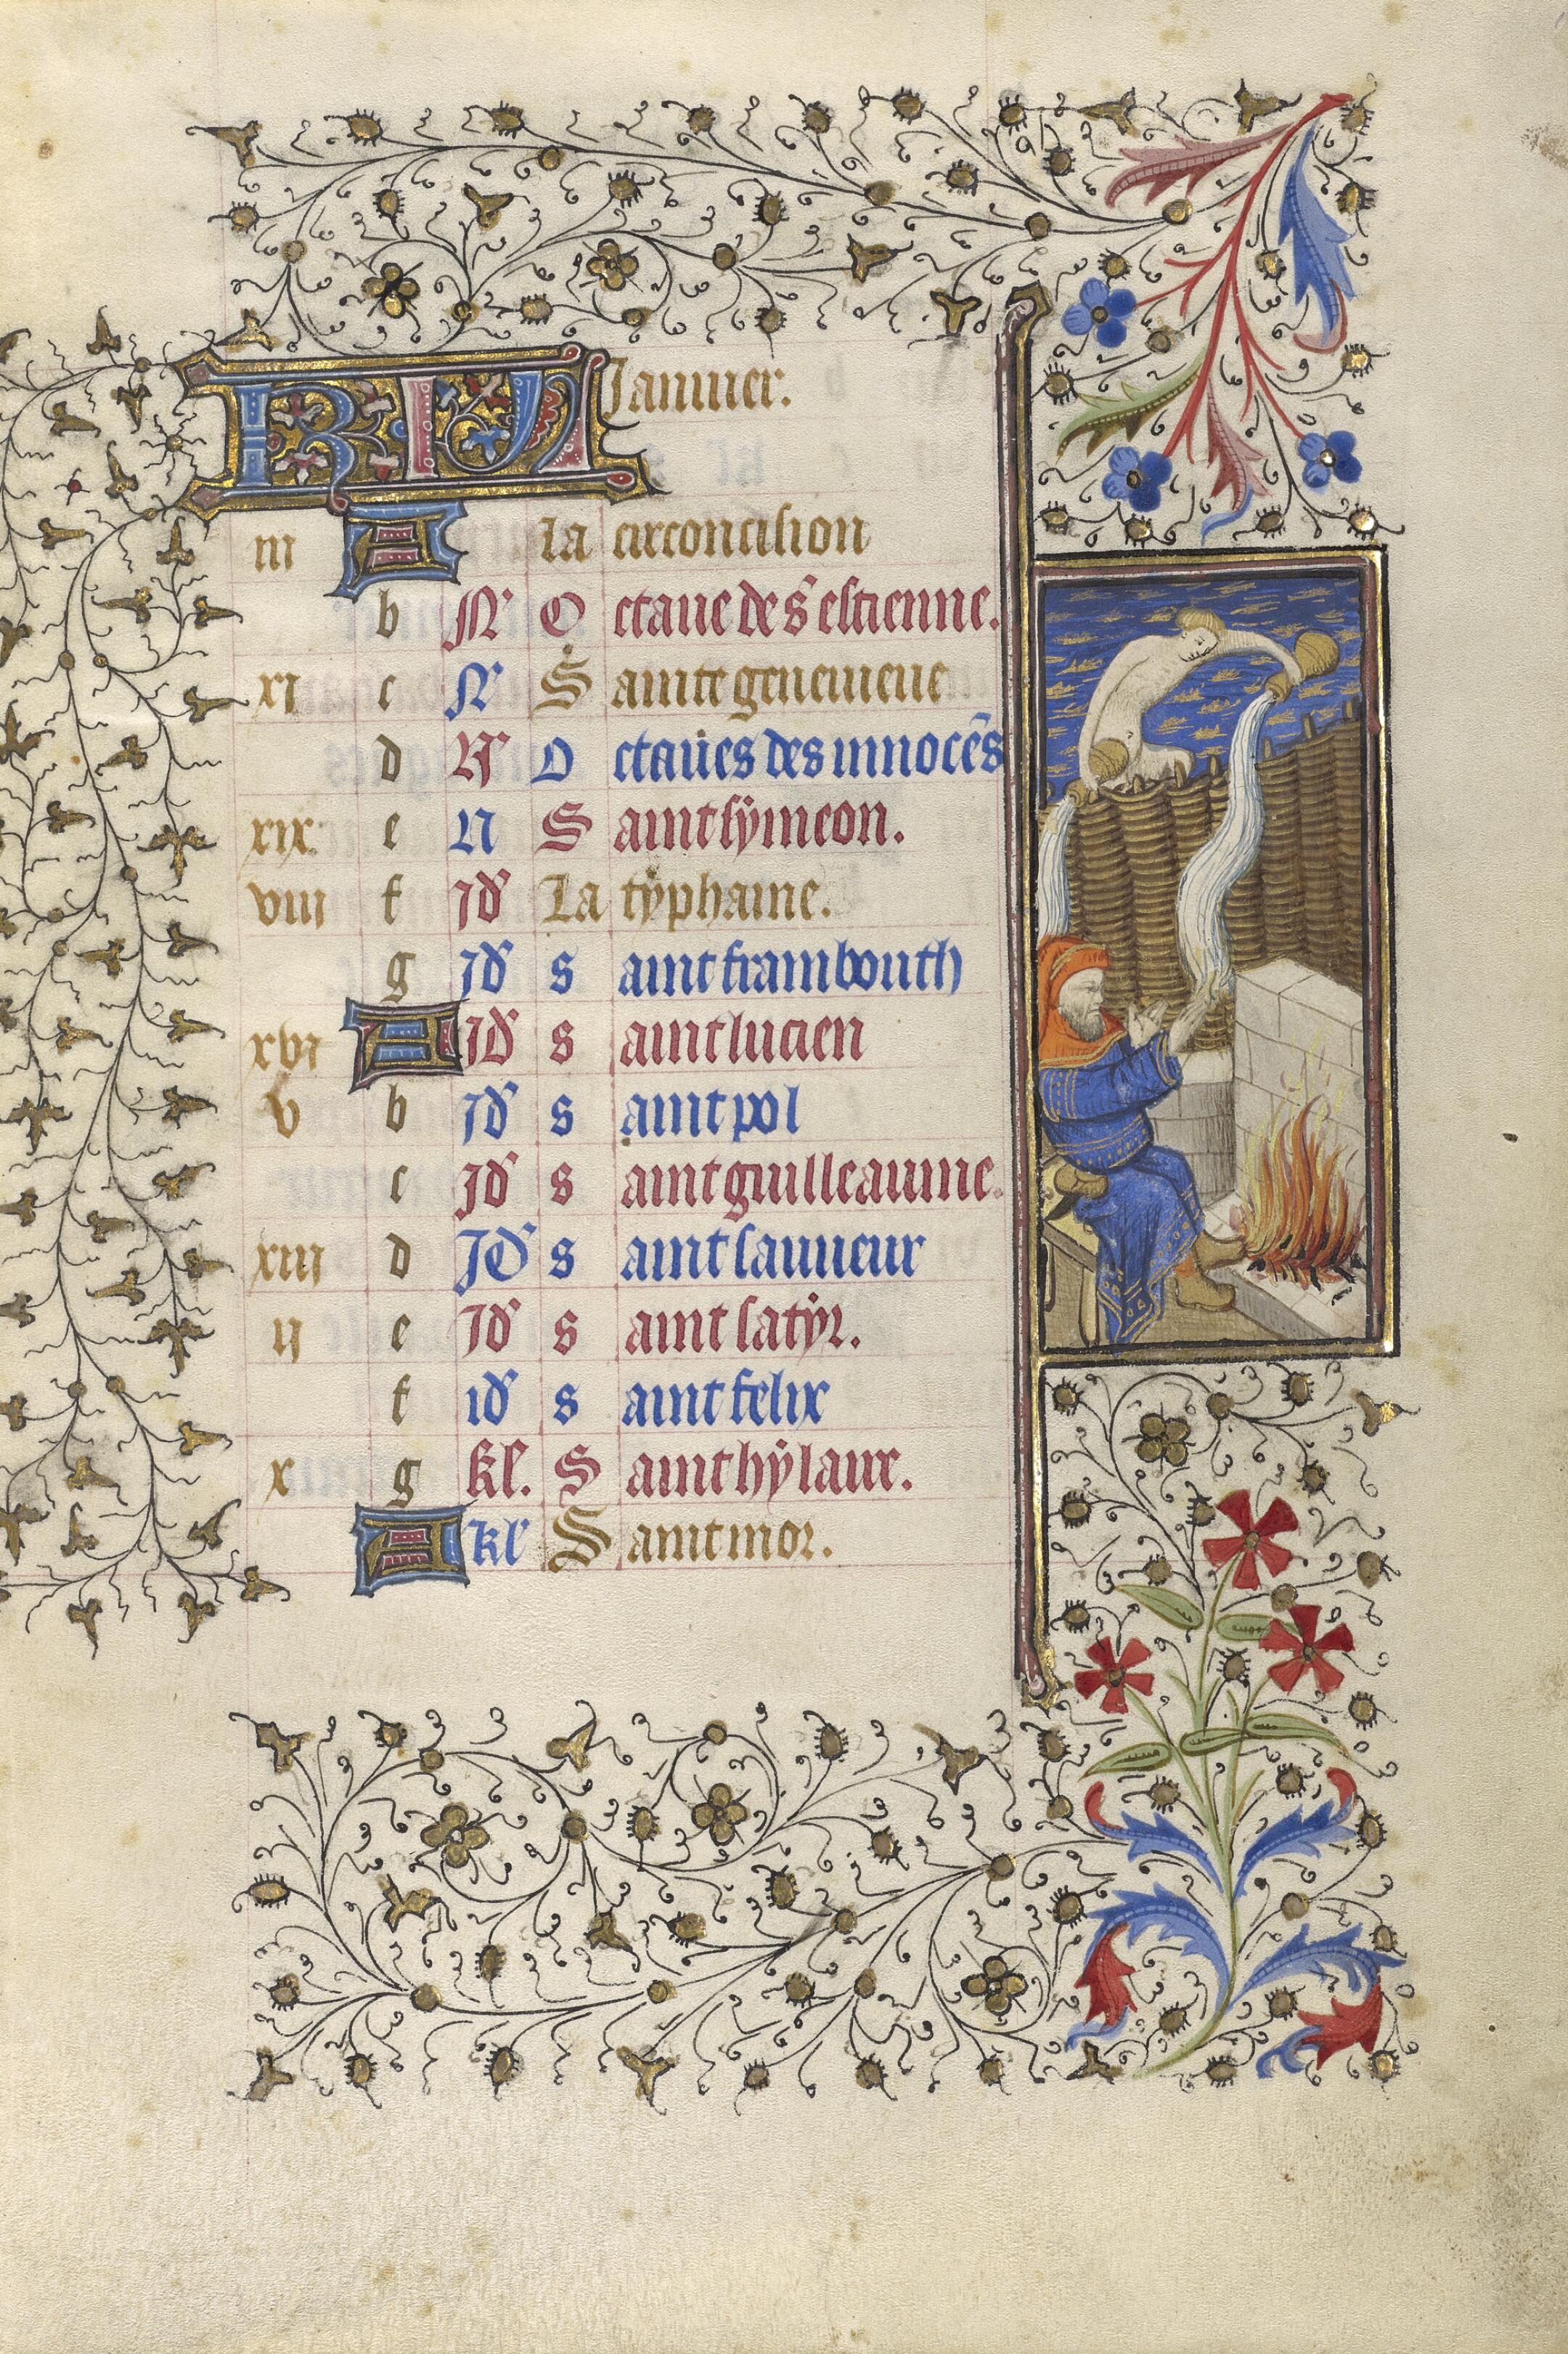 KL Januier.
iii A la circoncision
b N O ctaue de s estienne.
xi c N S ainte geneuieue
d N O ctaues des innocēs
xix e N S aint sÿmeon.
viii f Id La tÿphaine.
g Id s aint frambouth
xvi A Id s aint lucien
v b Id s aint pol
c Id s aint guilleaume.
xiii d Id s aint sauueur
ii e Id s aint satÿr.
f id s aint felix
x g kl. S aint hÿlaire.
A kl S aint mor.